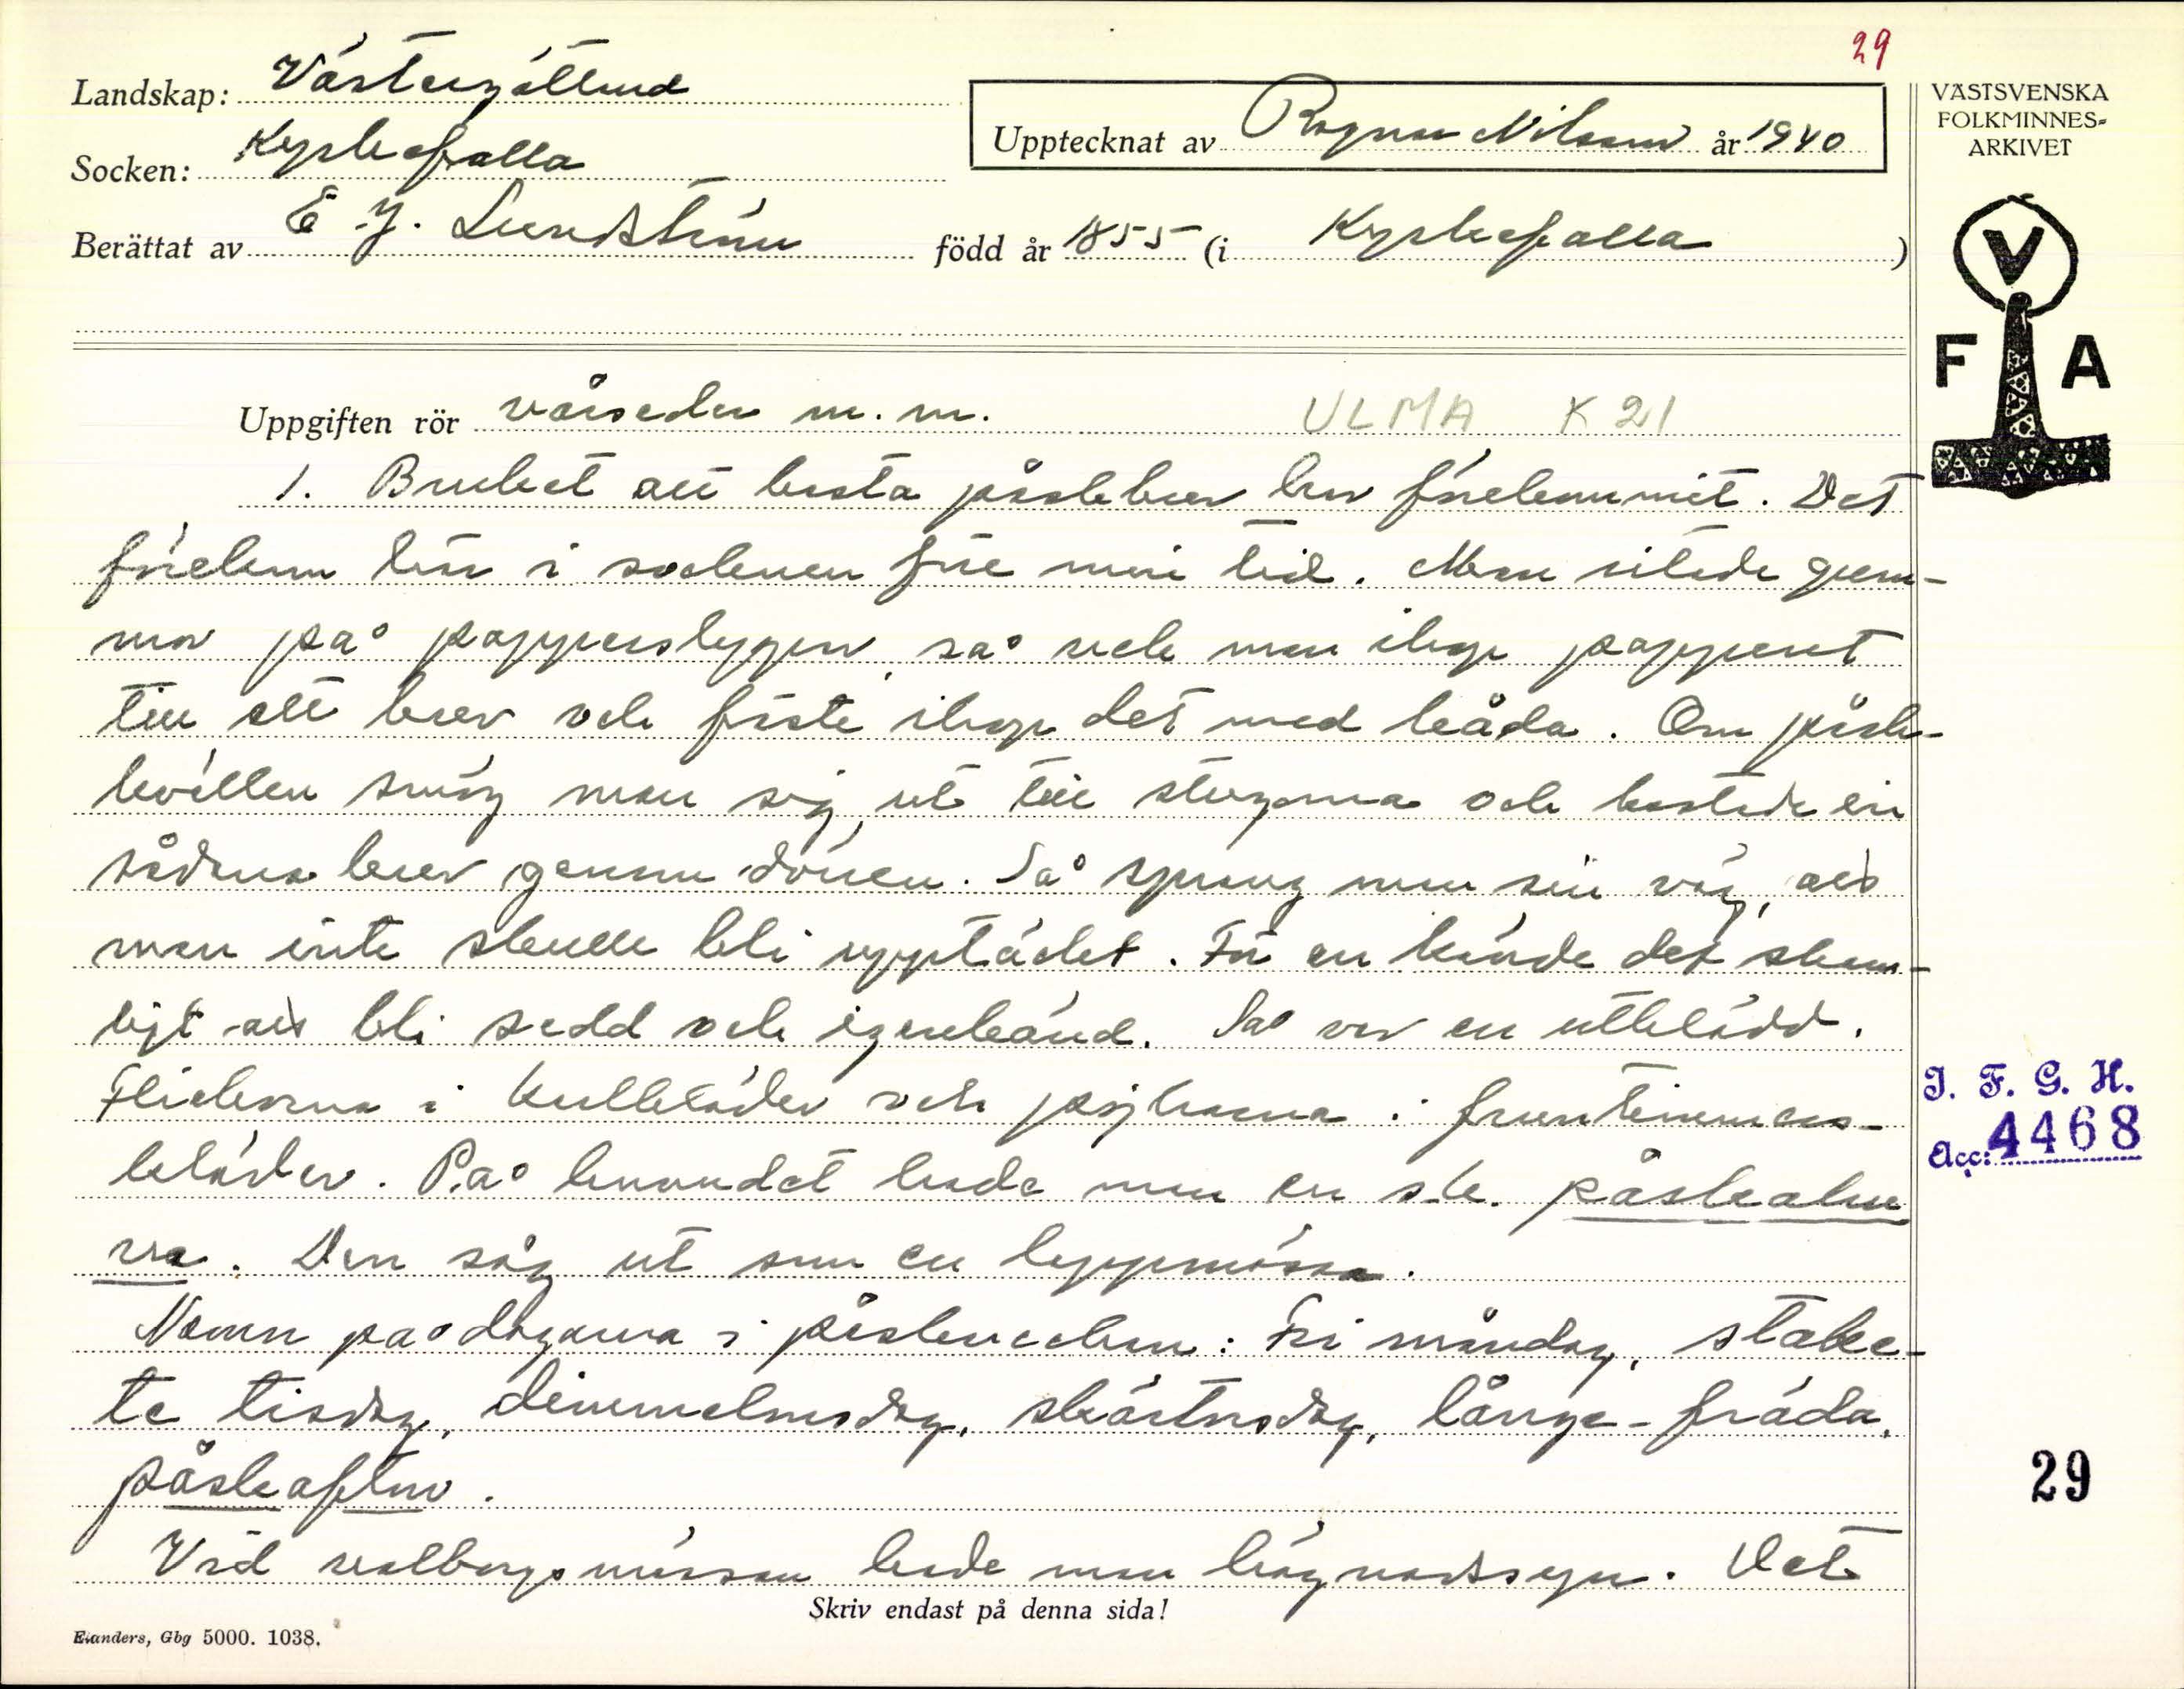 29
Landskap: Västergötland
Socken: Kyrkefalla
Upptecknat av Ragnar Nilsson år 1940
Berättat av E. J. Lundström född år 1855 (i Kyrkefalla)
VÄSTSVENSKA
FOLKMINNES-
ARKIVET
V
F A
Uppgiften rör vårseder m. m.
ULMA K 21
1. Bruket att kasta påskbrev har förekommit. Det
förekom här i socknen före min tid. Man ritade gum-
mor på papperslappar, så vek man ihop papperet
till ett brev och fäste ihop det med kåda. Om påsk-
kvällen smög man sig ut till stugorna och kastade in
sådana brev genom dörren. Så sprang man sin väg, att
man inte skulle bli upptäckt. För en kände det skam-
ligt att bli sedd och igenkänd. Så var en utklädd.
Flickorna i karlkläder och pojkarna i fruntimmers-
kläder. På huvudet hade man en s.k. påskaluv
va. Den såg ut som en luppmössa.
Namn på dagarna i påskveckan: Fri måndag, stake-
te tisdag, dimmelonsdag, skärtorsdag, långe-fräda,
påskafton.
Vid valborgsmässan hade man hägnadssyn. Det
Skriv endast på denna sida!
Elanders, Gbg 5000. 1038.
I. F. G. H.
Acc: 4468
29